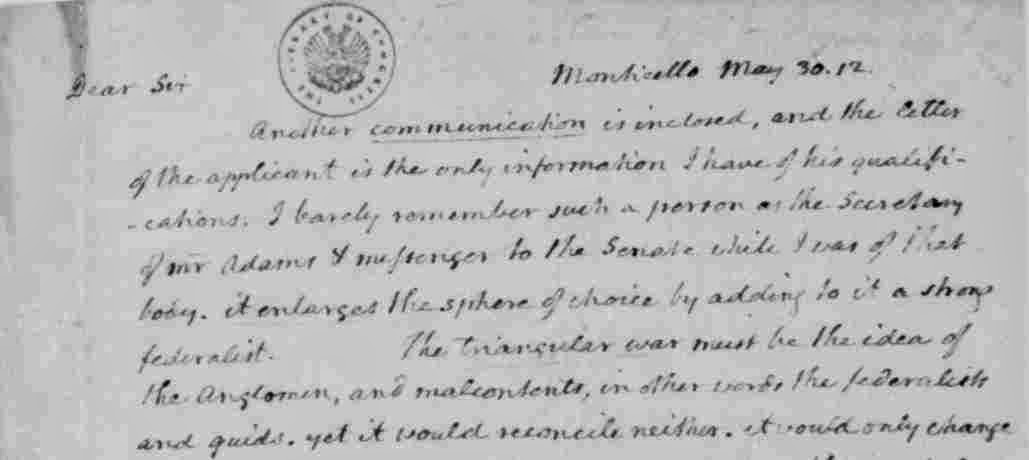 THE LIBRARY OF CONGRESS
Dear Sir
Monticello May 30. 12.
Another communication is inclosed, and the letter
of the applicant is the only information I have of his qualifi-
-cations. I barely remember such a person as the Secretary
of mr Adams & messenger to the Senate while I was of that
body. it enlarges the sphere of choice by adding to it a strong
federalist. The triangular war must be the idea of
the Anglomen, and malcontents, in other words the federalists
and quids. yet it would reconcile neither. it would only change